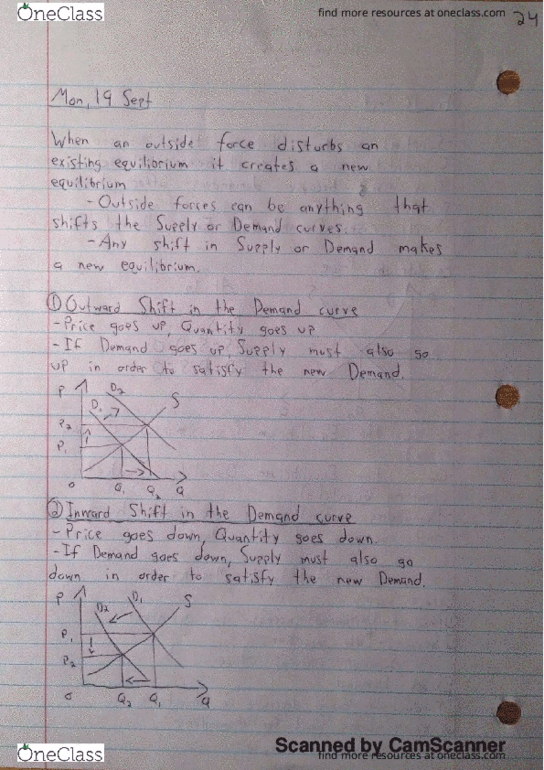 OneClass
find more resources at oneclass.com
24
Mon, 19 Sept
When an outside force disturbs an
existing equilibrium it creates a new
equilibrium
- Outside forces can be anything that
shifts the Supply or Demand curves.
- Any shift in Supply or Demand makes
a new equilibrium.
① Outward Shift in the Demand curve
- Price goes up, Quantity goes up
- If Demand goes up, Supply must also go
up in order to satisfy the new Demand.
P D2
D1 S
P2
P1
0 Q1 Q2 Q
② Inward Shift in the Demand curve
- Price goes down, Quantity goes down.
- If Demand goes down, Supply must also go
down in order to satisfy the new Demand.
P D2 D1 S
P1
P2
0 Q2 Q1 Q
Scanned by CamScanner
OneClass
find more resources at oneclass.com